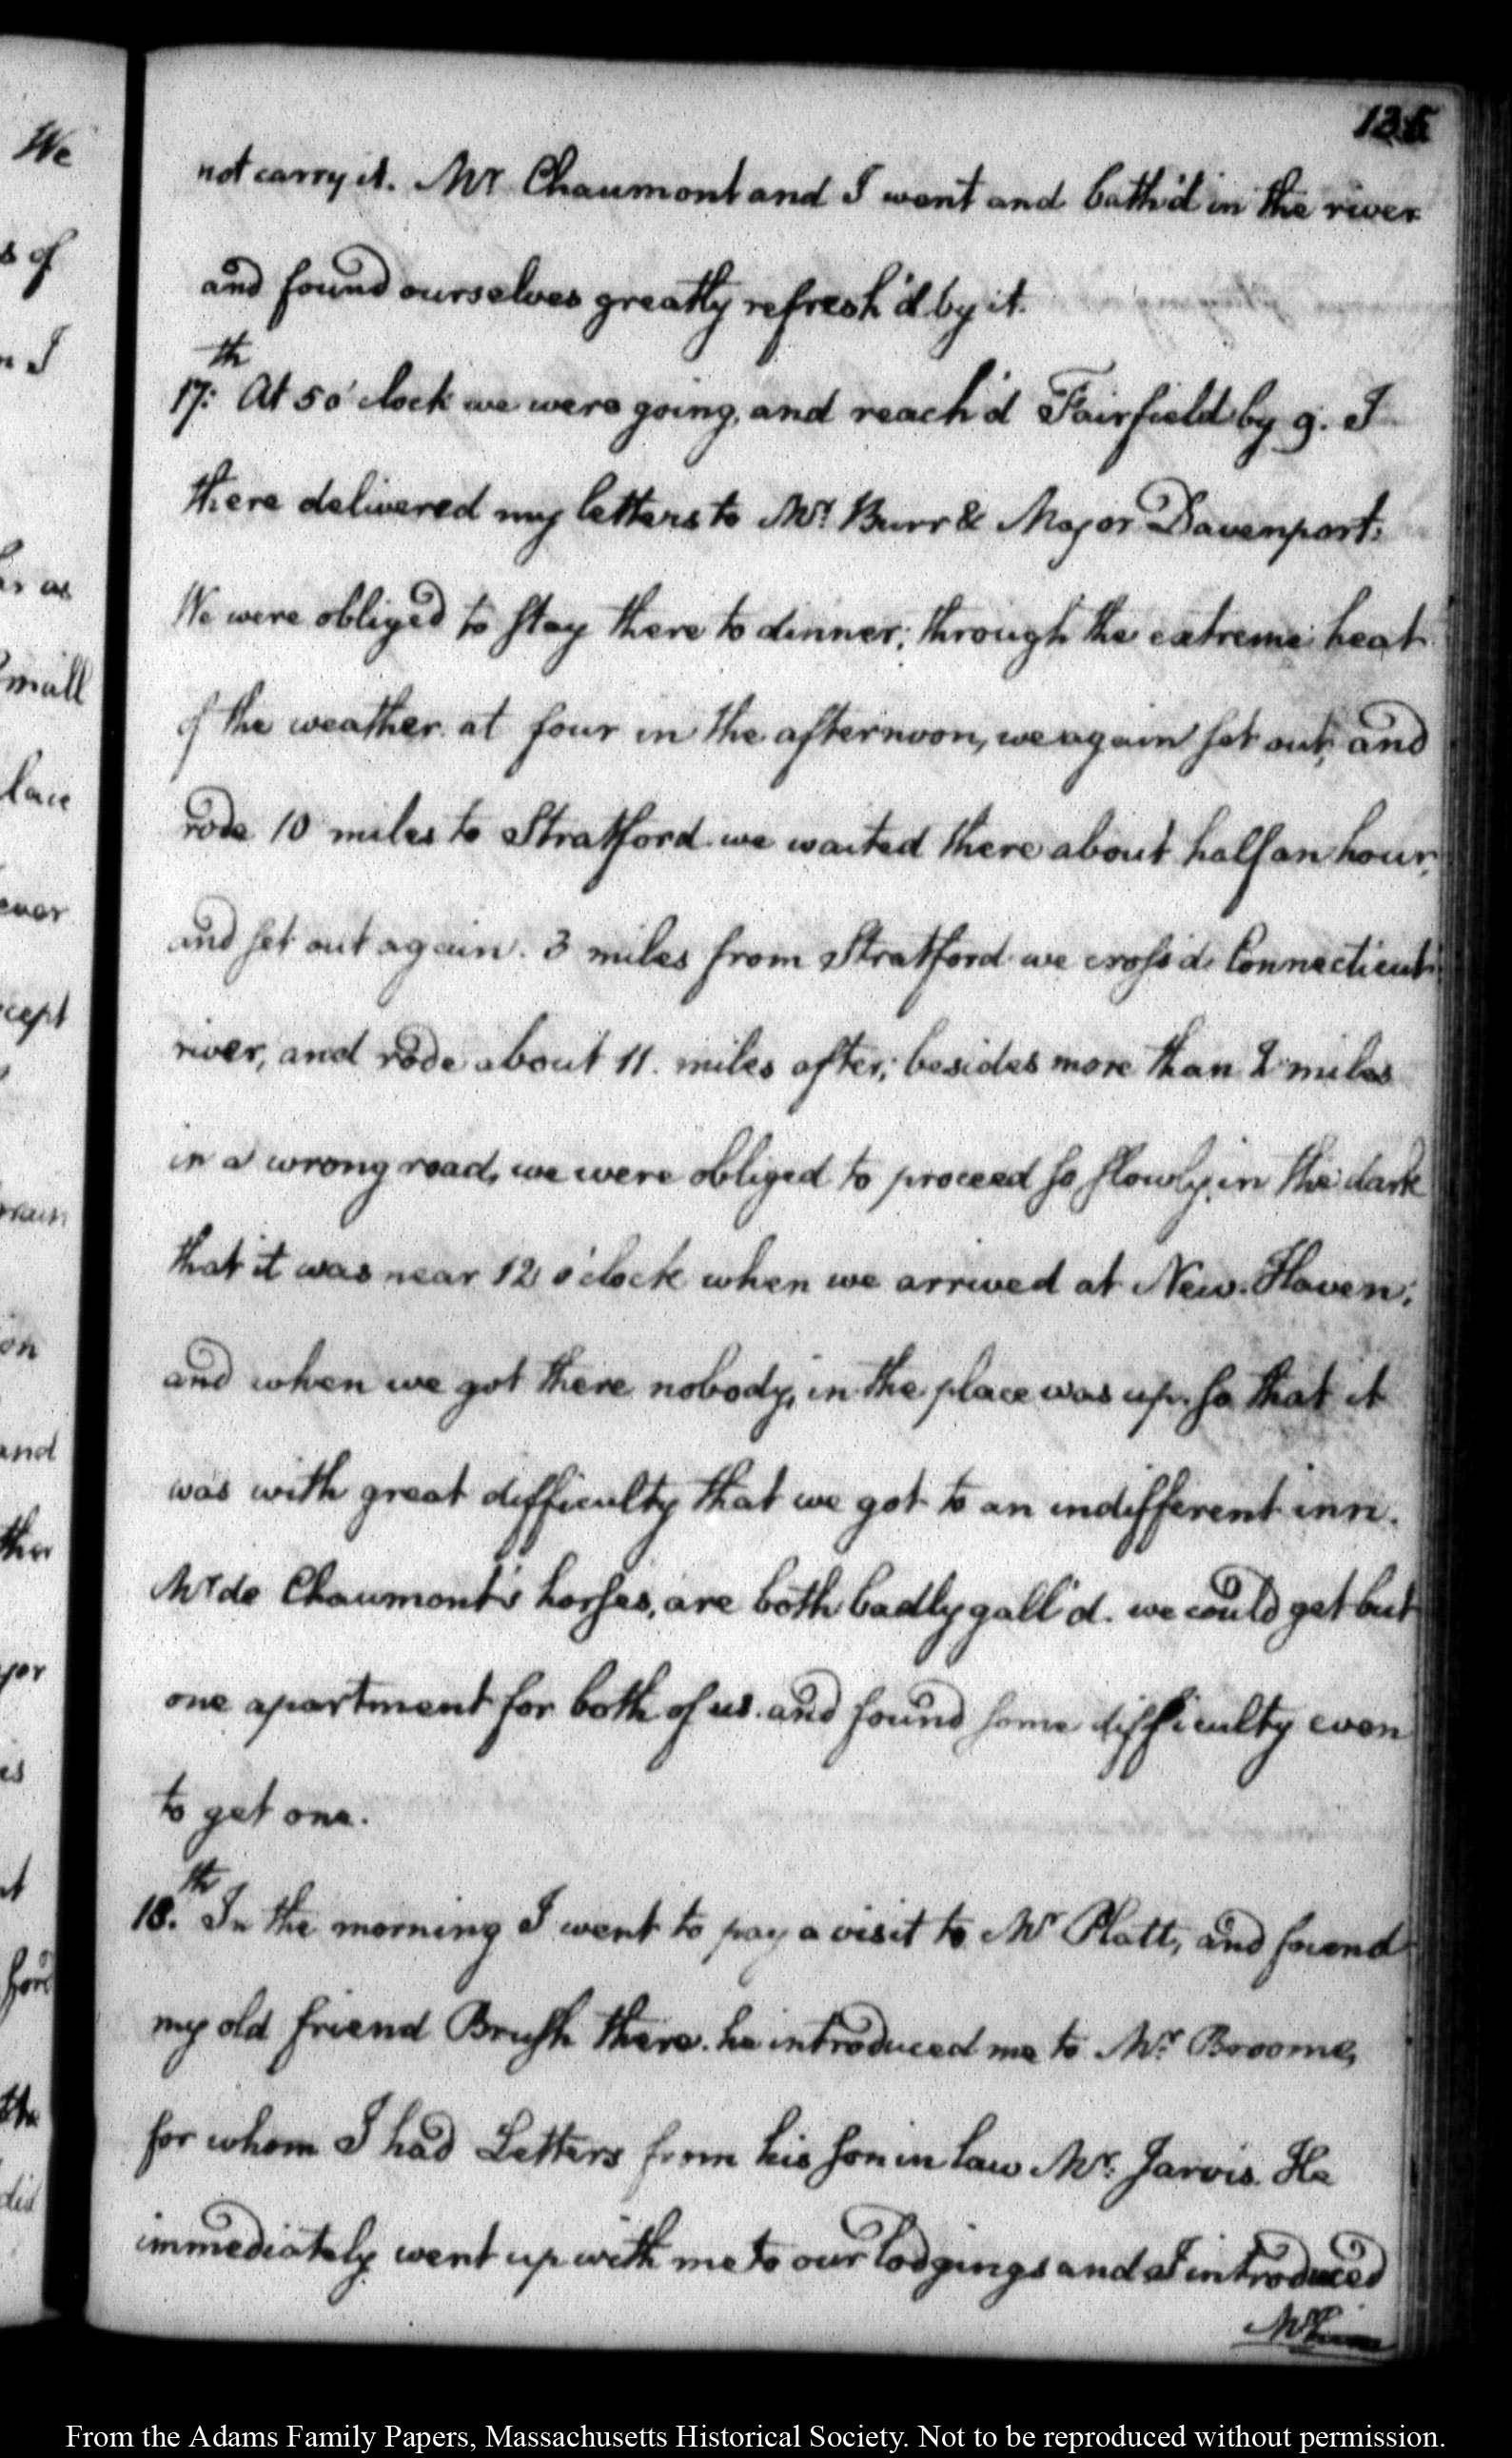 We
s of
n I
as
mall
lace
ever
cept
on
and
ther
jor
is
t
for
the
did
not carry it. Mr Chaumont and I went and bath'd in the river
and found ourselves greatly refresh'd by it.
17:th At 5 o'clock we were going, and reach'd Fairfield by 9. I
there delivered my letters to Mr. Burr & Major Davenport.
We were obliged to stay there to dinner; through the extreme heat
of the weather. at four in the afternoon, we again set out, and
rode 10 miles to Stratford. we waited there about half an hour,
and set out again. 3 miles from Stratford we cross'd Connecticut
river, and rode about 11. miles after; besides more than 2 miles
in a wrong road, we were obliged to proceed so slowly, in the dark
that it was near 12 o'clock when we arrived at New-Haven;
and when we got there nobody, in the place was up. so that it
was with great difficulty that we got to an indifferent inn.
Mr de Chaumont's horses, are both badly gall'd. we could get but
one apartment for both of us. and found some difficulty even
to get one.
18.th In the morning I went to pay a visit to Mr Platt, and found
my old friend Brush there. he introduced me to Mr. Broome,
for whom I had Letters from his son in law Mr. Jarvis. He
immediately went up with me to our lodgings and I introduced
Mr
From the Adams Family Papers, Massachusetts Historical Society. Not to be reproduced without permission.